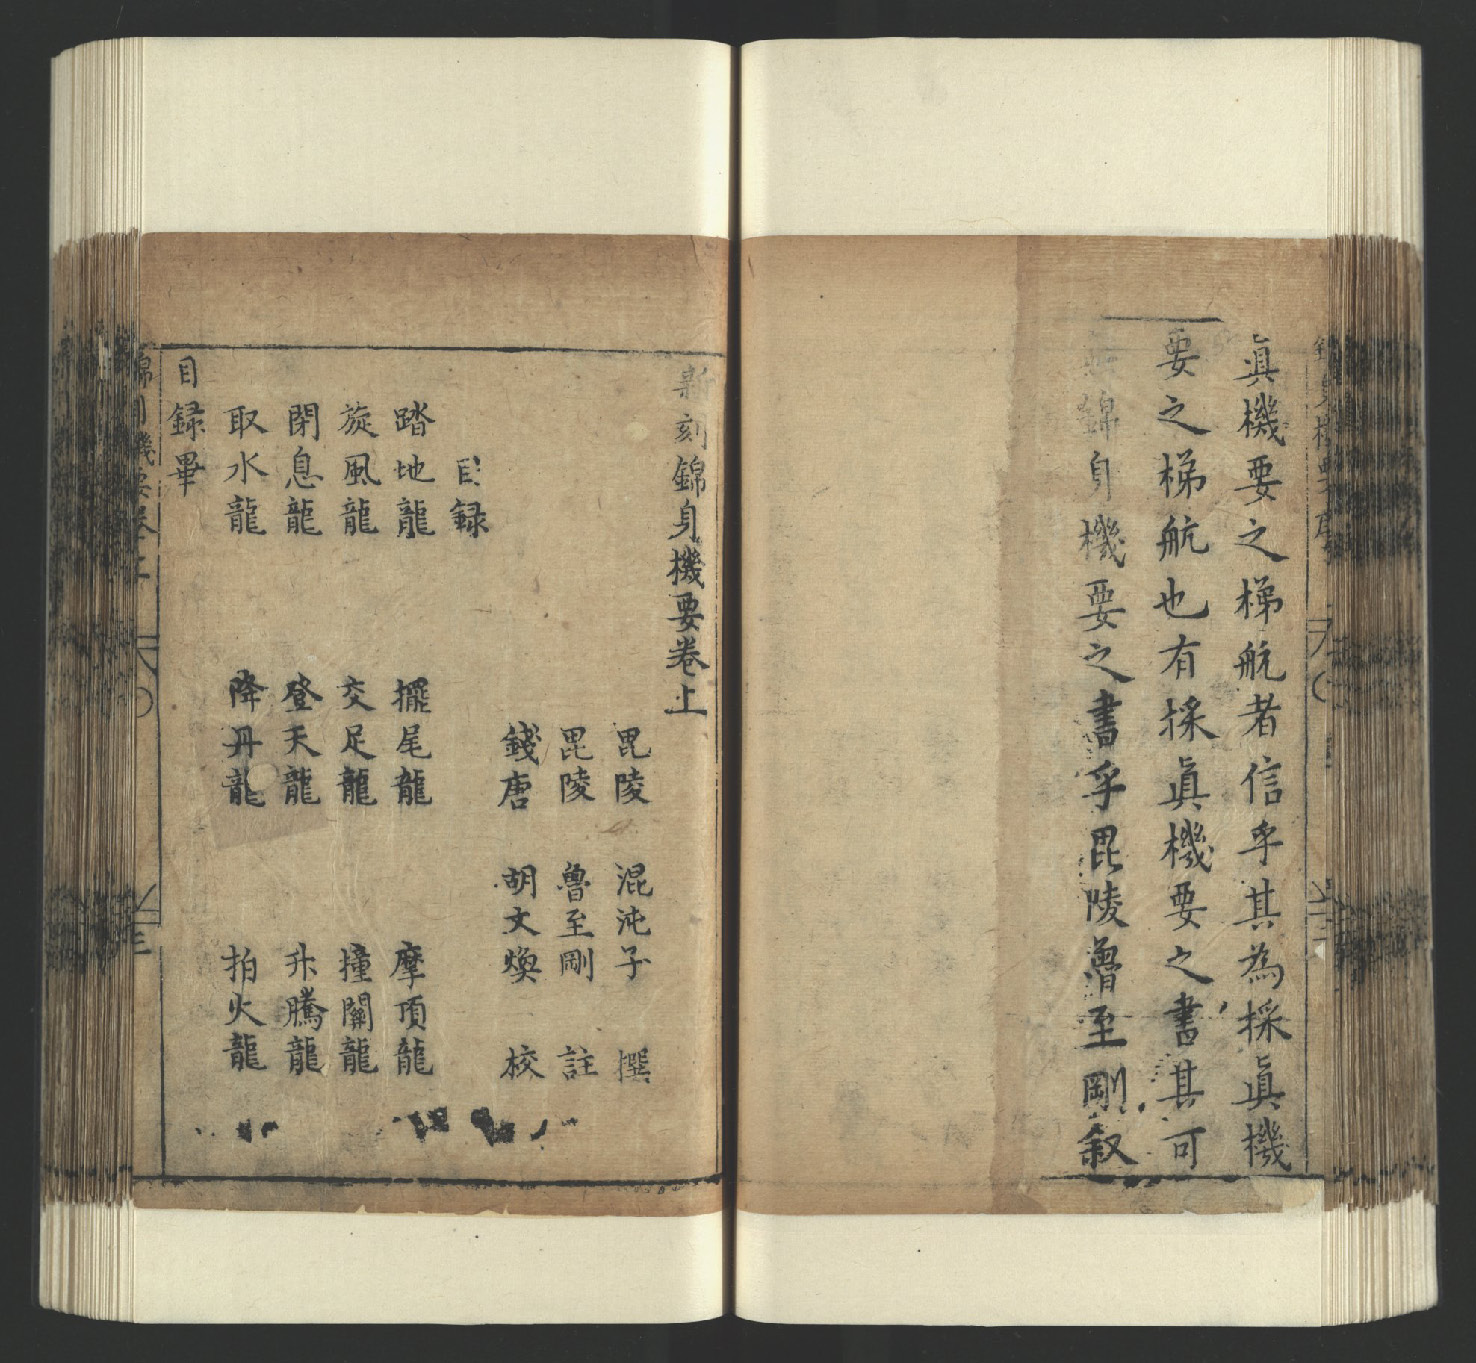 真機要之梯航者信乎其為採真機
要之梯航也有採真機要之書其可
無錦身機要之書乎毘陵魯至剛叙
新刻錦身機要卷上
毘陵 混沌子 撰
毘陵 魯至剛 註
錢唐 胡文煥 校
目録
踏地龍 擺尾龍 摩頂龍
旋風龍 交足龍 撞關龍
閉息龍 登天龍 升騰龍
取水龍 降丹龍 拍火龍
目録畢